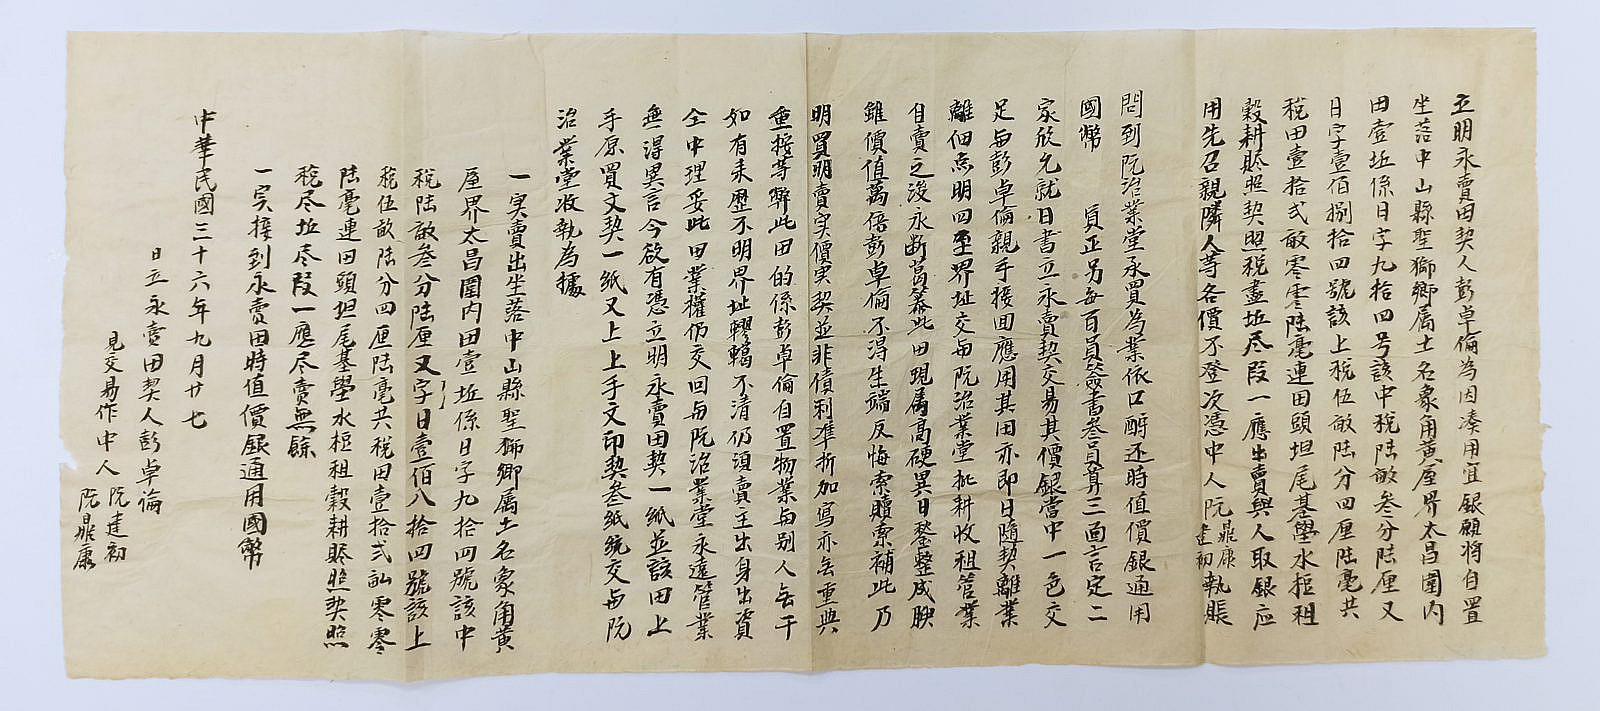 立明永賣田契人彭卓倫為因湊用宜銀願將自置
坐落中山縣聖獅鄉属土名象角黃屋界太昌圍内
田壹坵係日字九拾四号該中稅陸畝叁分陸厘又
日字壹佰捌拾四號該上稅伍畝陸分四厘陸毫共
稅田壹拾弍畝零零陸毫連田頭坦尾基壆水柜租
穀耕賑照契照稅盡坵尽段一應出賣與人取銀应
用先召親隣人等各價不登次憑中人阮鼎康建初執賬
問到阮治業堂承買為業依口酧还時值價銀通用
國幣 員正另每百員簽書叁員算三面言定二
家欣允就日書立永賣契交易其價銀當中一色交
足与彭卓倫親手接回應用其田亦即日隨契離業
離佃点明四至界址交与阮治業堂批耕收租管業
自賣之後永断葛藤此田現属高硬異日鋻整成腴
雖價值萬倍彭卓倫不得生端反悔索贖索補此乃
明買明賣实價实契並非債利準折加寫亦無重典
重按等弊此田的係彭卓倫自置物業与別人無干
如有来歷不明界址轇轕不清仍須賣主出身出資
仝中理妥此田業權仍交回与阮治業堂永遠管業
無得異言今欲有憑立明永賣田契一紙並該田上
手原買文契一紙又上上手文印契叁紙統交与阮
治業堂收執為據
一実賣出坐落中山縣聖獅鄉属土名象角黃
屋界太昌圍内田壹坵係日字九拾四號該中
稅陸畝叁分陸厘又字日壹佰八拾四號該上
稅伍畝陸分四厘陸毫共稅田壹拾弍畝零零
陸毫連田頭坦尾基壆水柜租穀耕賑照契照
稅尽坵尽段一應尽賣無餘
一実接到永賣田時值價銀通用國幣
中華民國三十六年九月廿七
日立永賣田契人彭卓倫
見交易作中人 阮建初
阮鼎康